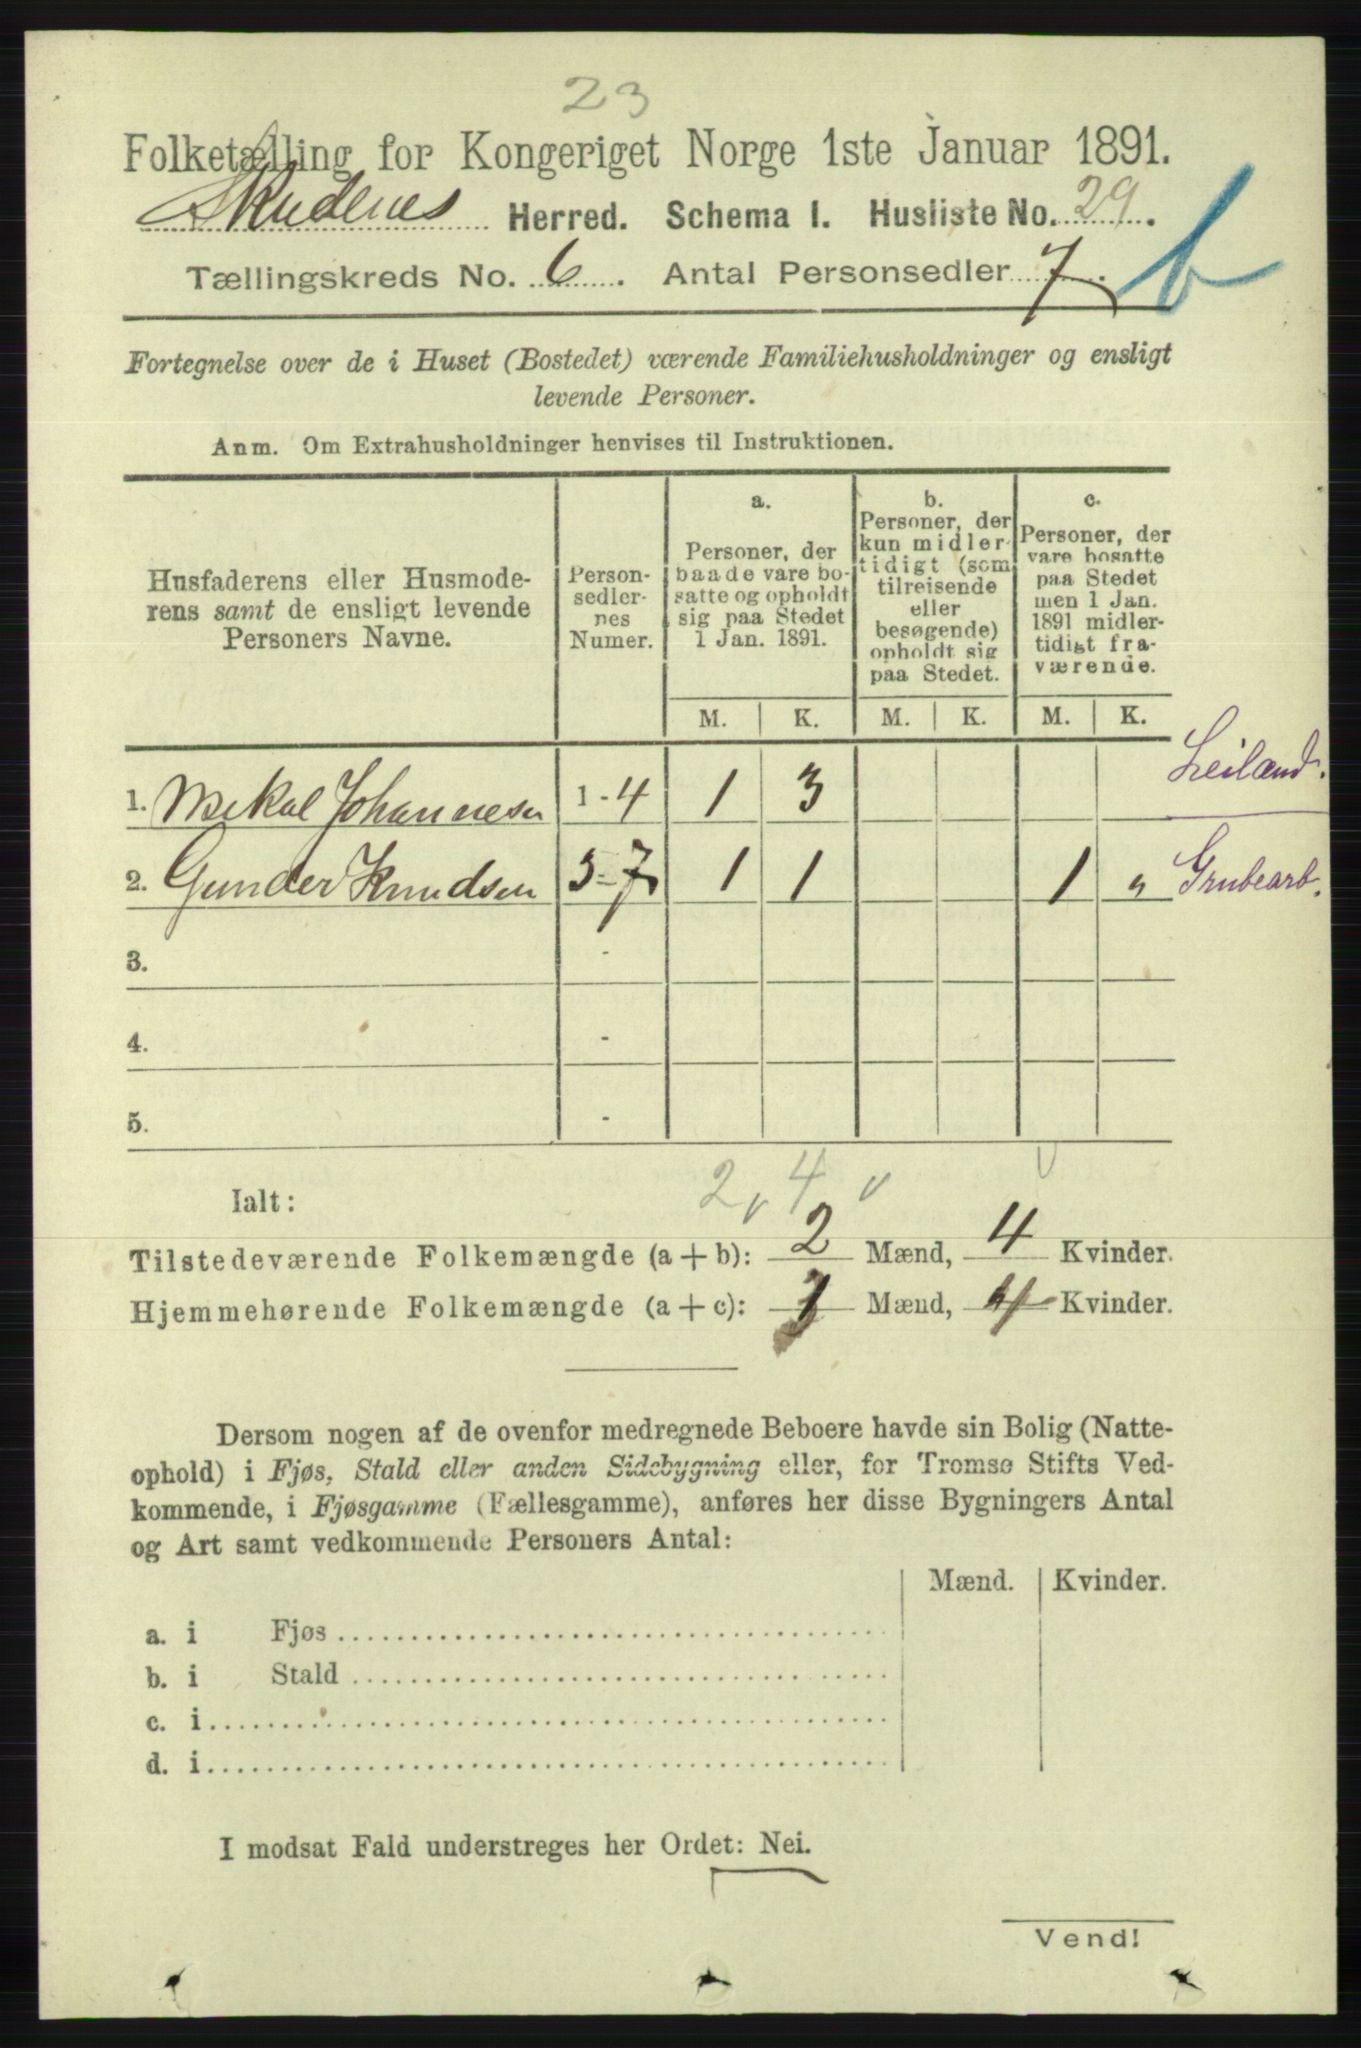 23
Folketælling for Kongeriget Norge 1ste Januar 1891.
Skudenes Herred. Schema I. Husliste No. 29.
Tællingskreds No. 6. Antal Personsedler 7. b
Fortegnelse over de i Huset (Bostedet) værende Familiehusholdninger og ensligt
levende Personer.
Anm. Om Extrahusholdninger henvises til Instruktionen.
Husfaderens eller Husmode-
rens samt de ensligt levende
Personers Navne.
Person-
sedler-
nes
Numer.
a.
Personer, der
baade vare bo-
satte og opholdt
sig paa Stedet
1 Jan. 1891.
b.
Personer, der
kun midler-
tidigt (som
tilreisende
eller
besøgende)
opholdt sig
paa Stedet.
c.
Personer, der
vare bosatte
paa Stedet
men 1 Jan.
1891 midler-
tidigt fra-
værende.
M. K. M. K. M. K.
1. Mekal Johannesen 1 - 4 1 3 Leilænd.
2. Gunder Knudsen 5 - 7 1 1 1 " Grubearb.
3. -
4. -
5. -
2 v 4 v v
Ialt:
Tilstedeværende Folkemængde (a + b): 2 Mænd, 4 Kvinder.
Hjemmehørende Folkemængde (a + c): 3 Mænd, 4 Kvinder.
Dersom nogen af de ovenfor medregnede Beboere havde sin Bolig (Natte-
ophold) i Fjøs, Stald eller anden Sidebygning eller, for Tromsø Stifts Ved-
kommende, i Fjøsgamme (Fællesgamme), anføres her disse Bygningers Antal
og Art samt vedkommende Personers Antal:
Mænd. Kvinder.
a. i Fjøs
b. i Stald
c. i
d. i
I modsat Fald understreges her Ordet: Nei.
Vend!